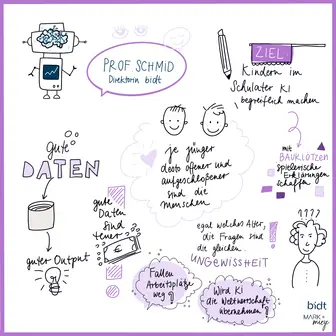 PROF SCHMID
Direktorin bidt
ZIEL
Kindern im
Schulalter KI
begreiflich machen
mit
BAUKLÖTZEN
spielerische
Erklärungen
schaffen
je jünger
desto offener und
aufgeschlossener
sind die
Menschen
Gute
DATEN
guter Output
gute
Daten
sind
teuer
€
egal welches Alter,
die Fragen sind
die gleichen
UNGEWISSHEIT
Fallen
Arbeitsplätze
weg?
Wird KI
die Weltherrschaft
übernehmen?
????
bidt
MARK+